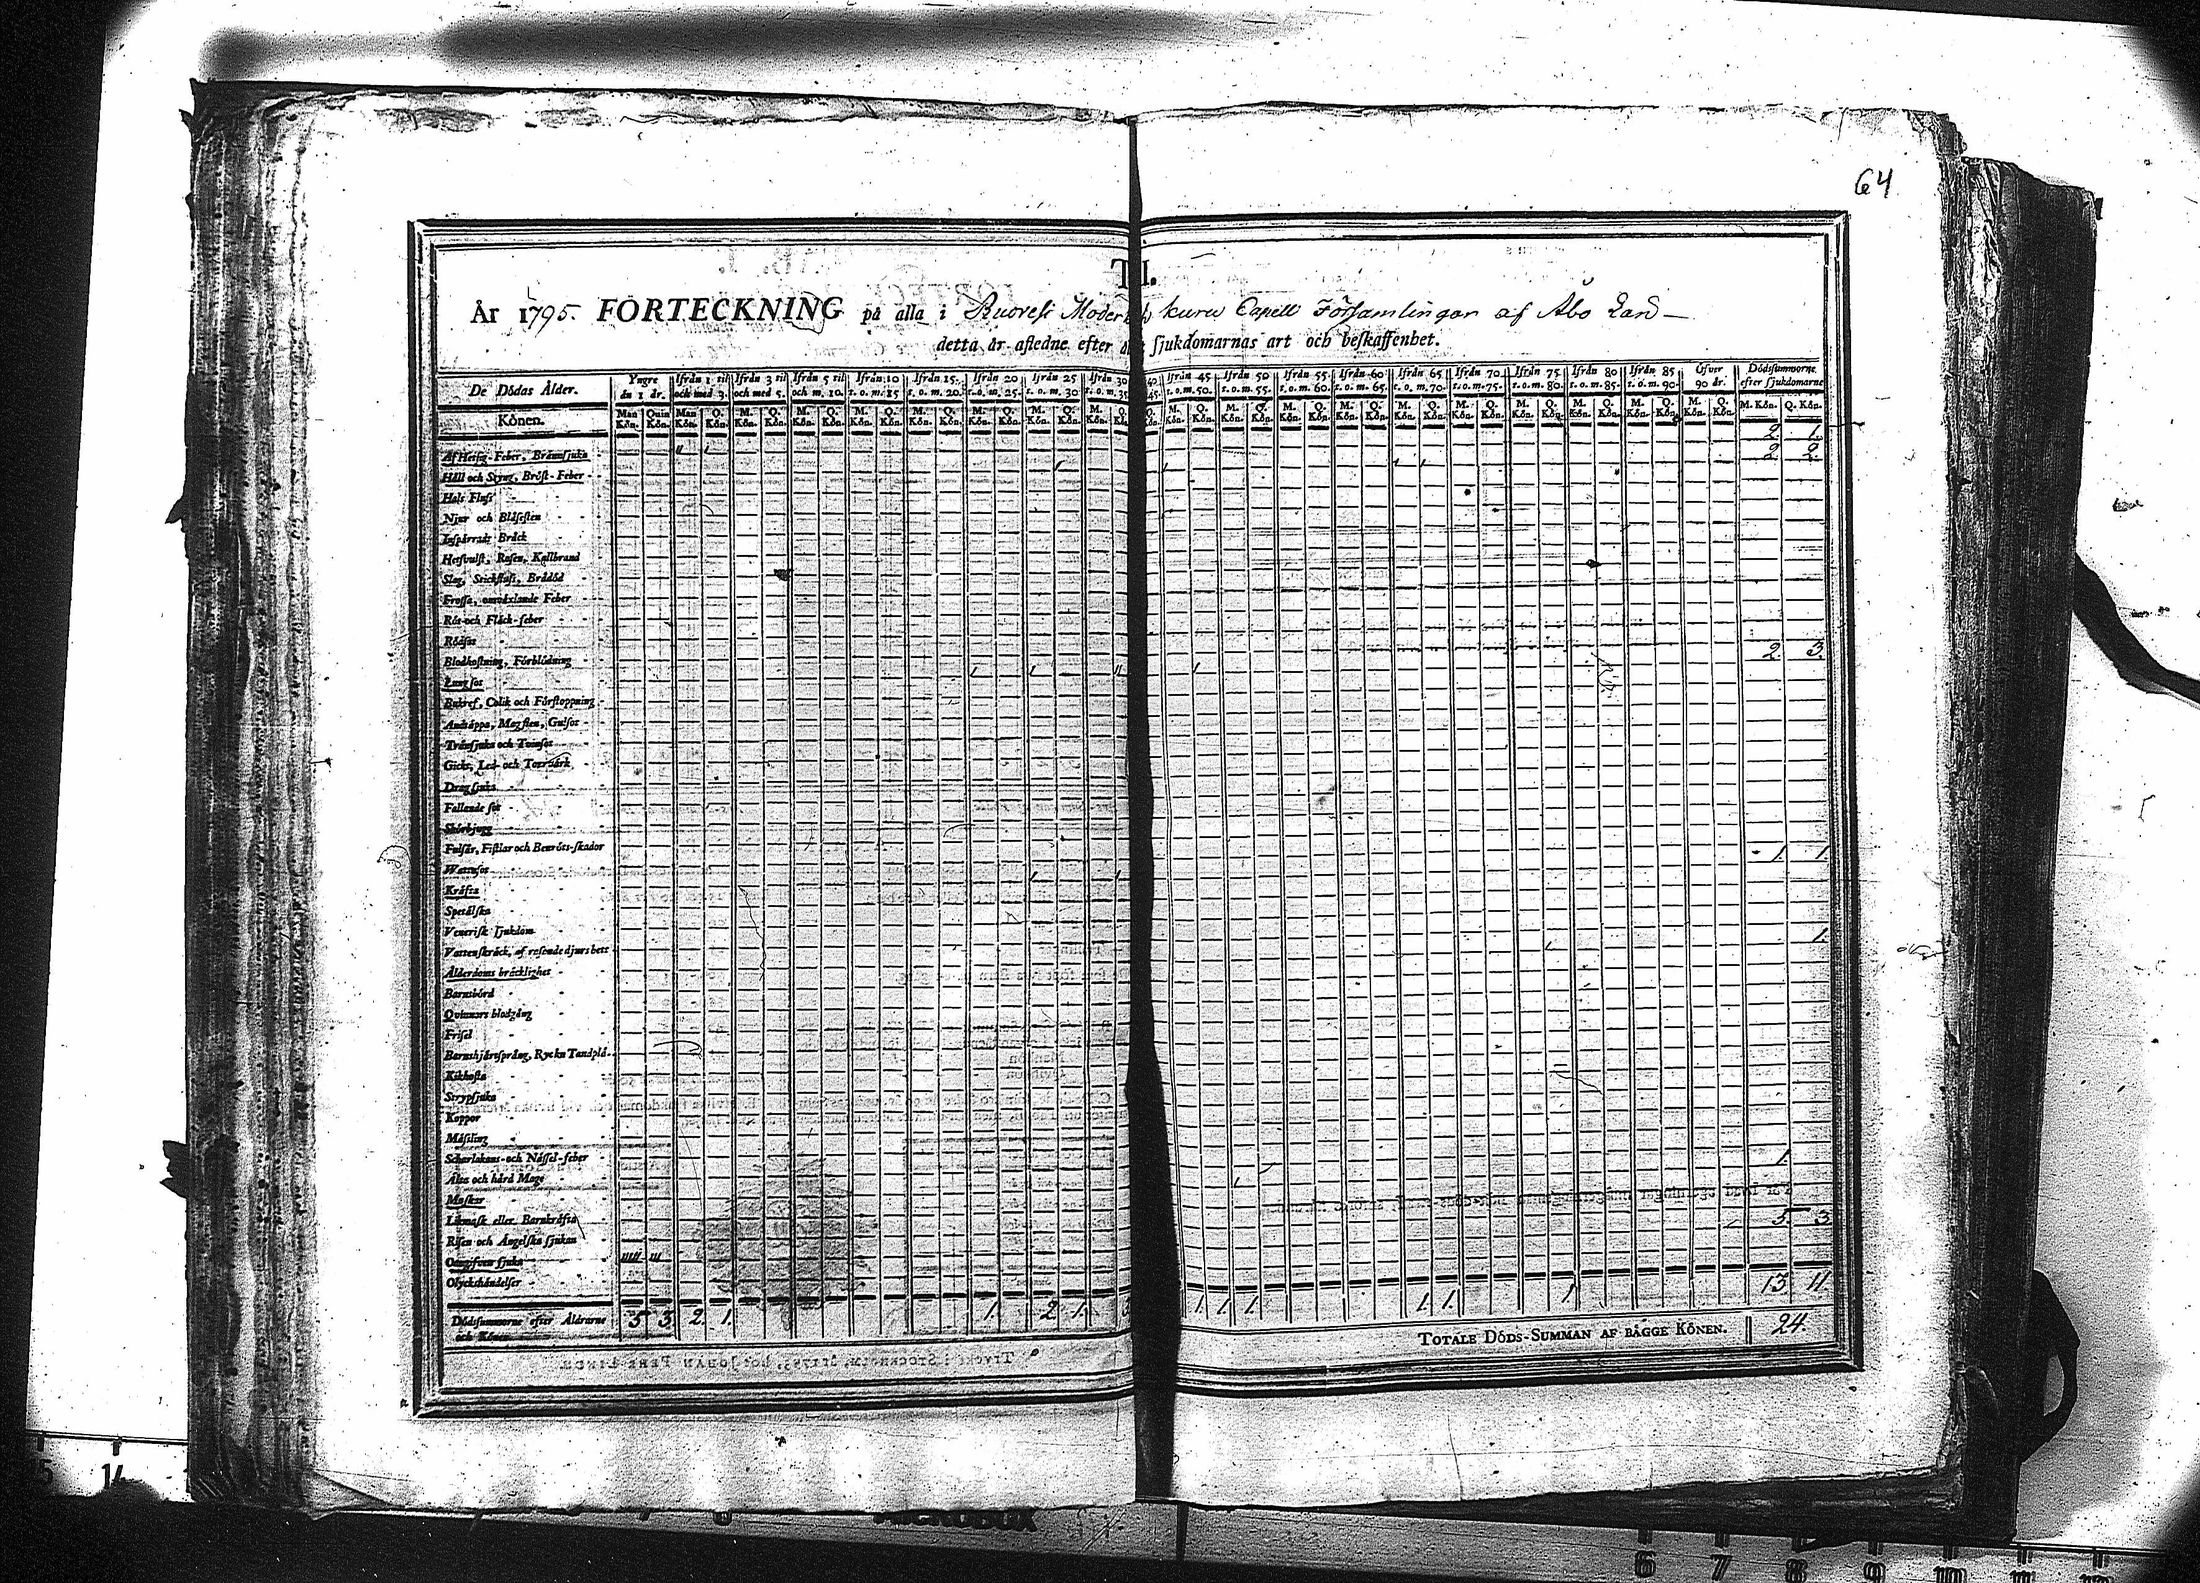 64
År 1795. FÖRTECKNING på alla i Ruovesi Moder kuru Capell Församlingar af Åbo Län
detta år afledne efter sjukdomarnas art och beskaffenhet.
De Dödas Ålder. Yngre än 1 år. Ifrån 1 til och med 3. Ifrån 3 til och med 5. Ifrån 5 til och m. 10. Ifrån 10 t. o. m. 15 Ifrån 15. t. o. m. 20. Ifrån 20 t. o. m. 25. Ifrån 25 t. o. m. 30 Ifrån 30 t. o. m. 35. Ifrån 45 t. o. m. 50. Ifrån 50 t. o. m. 55. Ifrån 55. t. o. m. 60. Ifrån 60 t. o. m. 65. Ifrån 65 t. o. m. 70. Ifrån 70 t. o. m. 75. Ifrån 75 t. o. m. 80. Ifrån 80 t. o. m. 85. Ifrån 85 t. o. m. 90. Öfver 90 år. Dödssummorne efter sjukdomarne
Könen. Man Kön. Quin Kön. Man Kön. Q. Kön. M. Kön. Q. Kön. M. Kön. Q. Kön. M. Kön. Q. Kön. M. Kön. Q. Kön. M. Kön. Q. Kön. M. Kön. Q. Kön. M. Kön. Q. Kön. M. Kön. Q. Kön. M. Kön. Q. Kön. M. Kön. Q. Kön. M. Kön. Q. Kön. M. Kön. Q. Kön. M. Kön. Q. Kön. M. Kön. Q. Kön. M. Kön. Q. Kön. M. Kön. Q. Kön. M. Kön. Q. Kön. M. Kön. Q. Kön.
Af Hetsig-Feber, Brännsjuka 2 1.
Håll och Styng, Bröst-Feber 2 2.
Hals Fluss
Njur och Blåsesten
Inspärradt Bråck
Hetsvulst, Rosen, Kallbrand
Slag, Stickfluss, Brådöd
Frossa, omväxlande Feber
Röt-och Fläck-feber
Rödsot
Blodhostning, Förblödning
Lungsot 2. 3.
Bukref, Colik och Förstoppning
Andtäppa, Magsten, Gulsot
Trånsjuka och Tvinsot
Gickt, Led- och Torrvärk
Dragsjuka
Fallande sot
Skörbjugg
Fulsår, Fistlar och Benröts-skador
Wattusot 1. 1.
Kräfta
Spetälska
Venerisk sjukdom
Vattenskräck, af rasande djurs bett
Ålderdoms bräcklighet 1.
Barnsbörd
Qvinnors blodgång
Frisel
Barnshjärtsprång, Ryck Tandplå.
Kikhosta
Strypsjuka
Koppor
Mässling
Scharlakans-och Nässel-feber
Älta och hård Mage
Maskar 1.
Likmask eller Barnkräfta
Risen och Ängelska sjukan
Oangifven sjuka 5. 3
Olyckshändelser
Dödssummorne efter Åldrarne och Könen 5 3. 2. 1. 1. 2 1. 1. 1. 1. 1. 1. 1. 13 11.
TOTALE DÖDS-SUMMAN AF BÄGGE KÖNEN. 24.